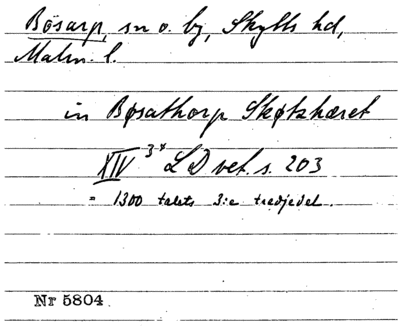 Bösarp, sn o. by, Skytts hd,
Malm. l.
in Bøsathorp Skøtzhæret
XIV 3x LD vet. s. 203
= 1300 talets 3:e tredjedel.
Nr 5804